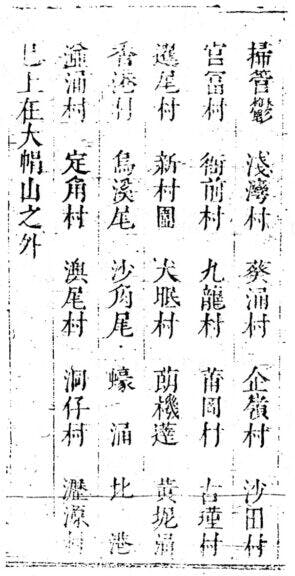 掃管鬱 淺灣村 葵涌村 企嶺村 沙田村
官富村 衙前村 九龍村 莆岡村 古瑾村
選尾村 新村圍 犬眠村 機 黃坭涌
香港村 烏溪尾 沙角尾 蠔涌 北港
涌村 定角村 澳尾村 洞仔村 瀝源村
已上在大帽山之外